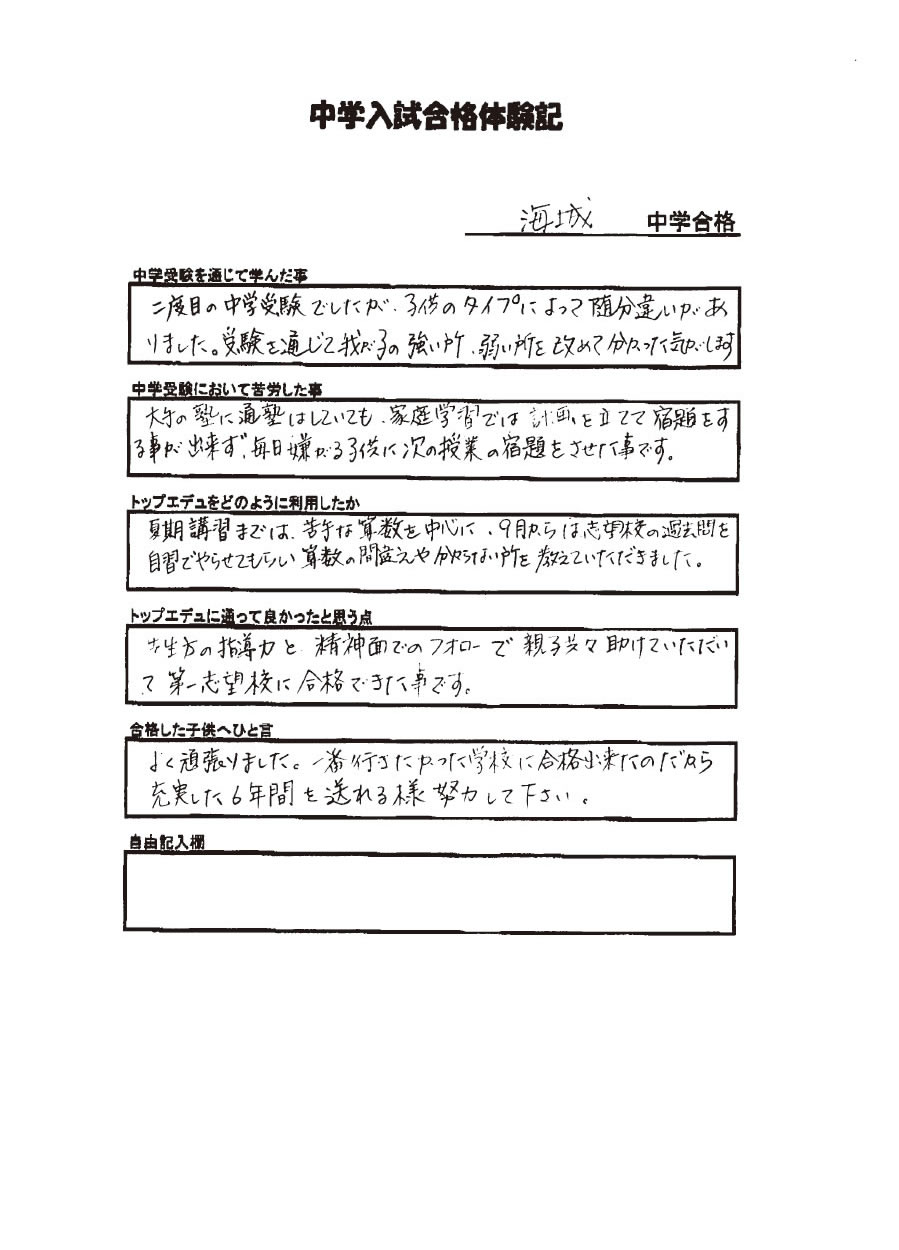 中学入試合格体験記
海城 中学合格
中学受験を通じて学んだ事
二度目の中学受験でしたが、子供のタイプによって随分違いがあ
りました。受験を通じて我が子の強い所、弱い所を改めて分かった気がします
中学受験において苦労した事
大手の塾に通塾はしていても、家庭学習では計画を立てて宿題をす
る事が出来ず、毎日嫌がる子供に次の授業の宿題をさせた事です。
トップエデュをどのように利用したか
夏期講習までは、苦手な算数を中心に、9月からは志望校の過去問を
自習でやらせてもらい算数の間違えや分からない所を教えていただきました。
トップエデュに通って良かったと思う点
先生方の指導力と、精神面でのフォローで親子共々助けていただい
て第一志望校に合格できた事です。
合格した子供へひと言
よく頑張りました。一番行きたかった学校に合格出来たのだから
充実した6年間を送れる様努力して下さい。
自由記入欄